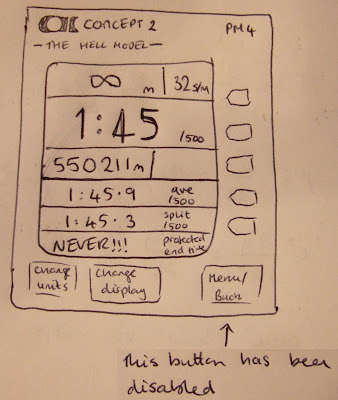 CONCEPT 2 PM4
- THE HELL MODEL -
∞ m 32 s/m
1:45 /500
550211m
1:45.9 ave /500
1:45.3 split /500
NEVER!!! projected end time
Change units
Change display
Menu/ Back
This button has been
disabled